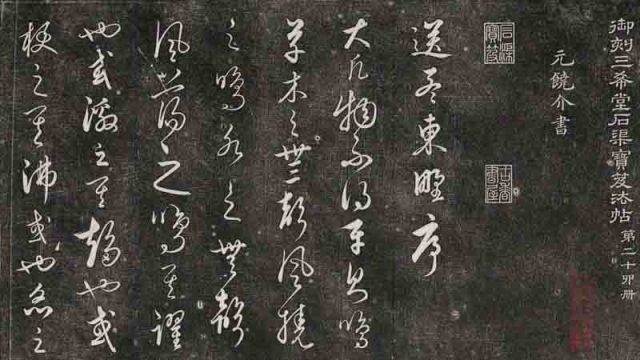 御刻三希堂石渠寶笈法帖 第二十四册
元饒介書
石渠寶笈
送孟東野序
大凡物不得平則鳴
草木之無聲風撓
之鳴水之無聲
風蕩之鳴其躍
也或激之其趨也或
梗之其沸或也炙之